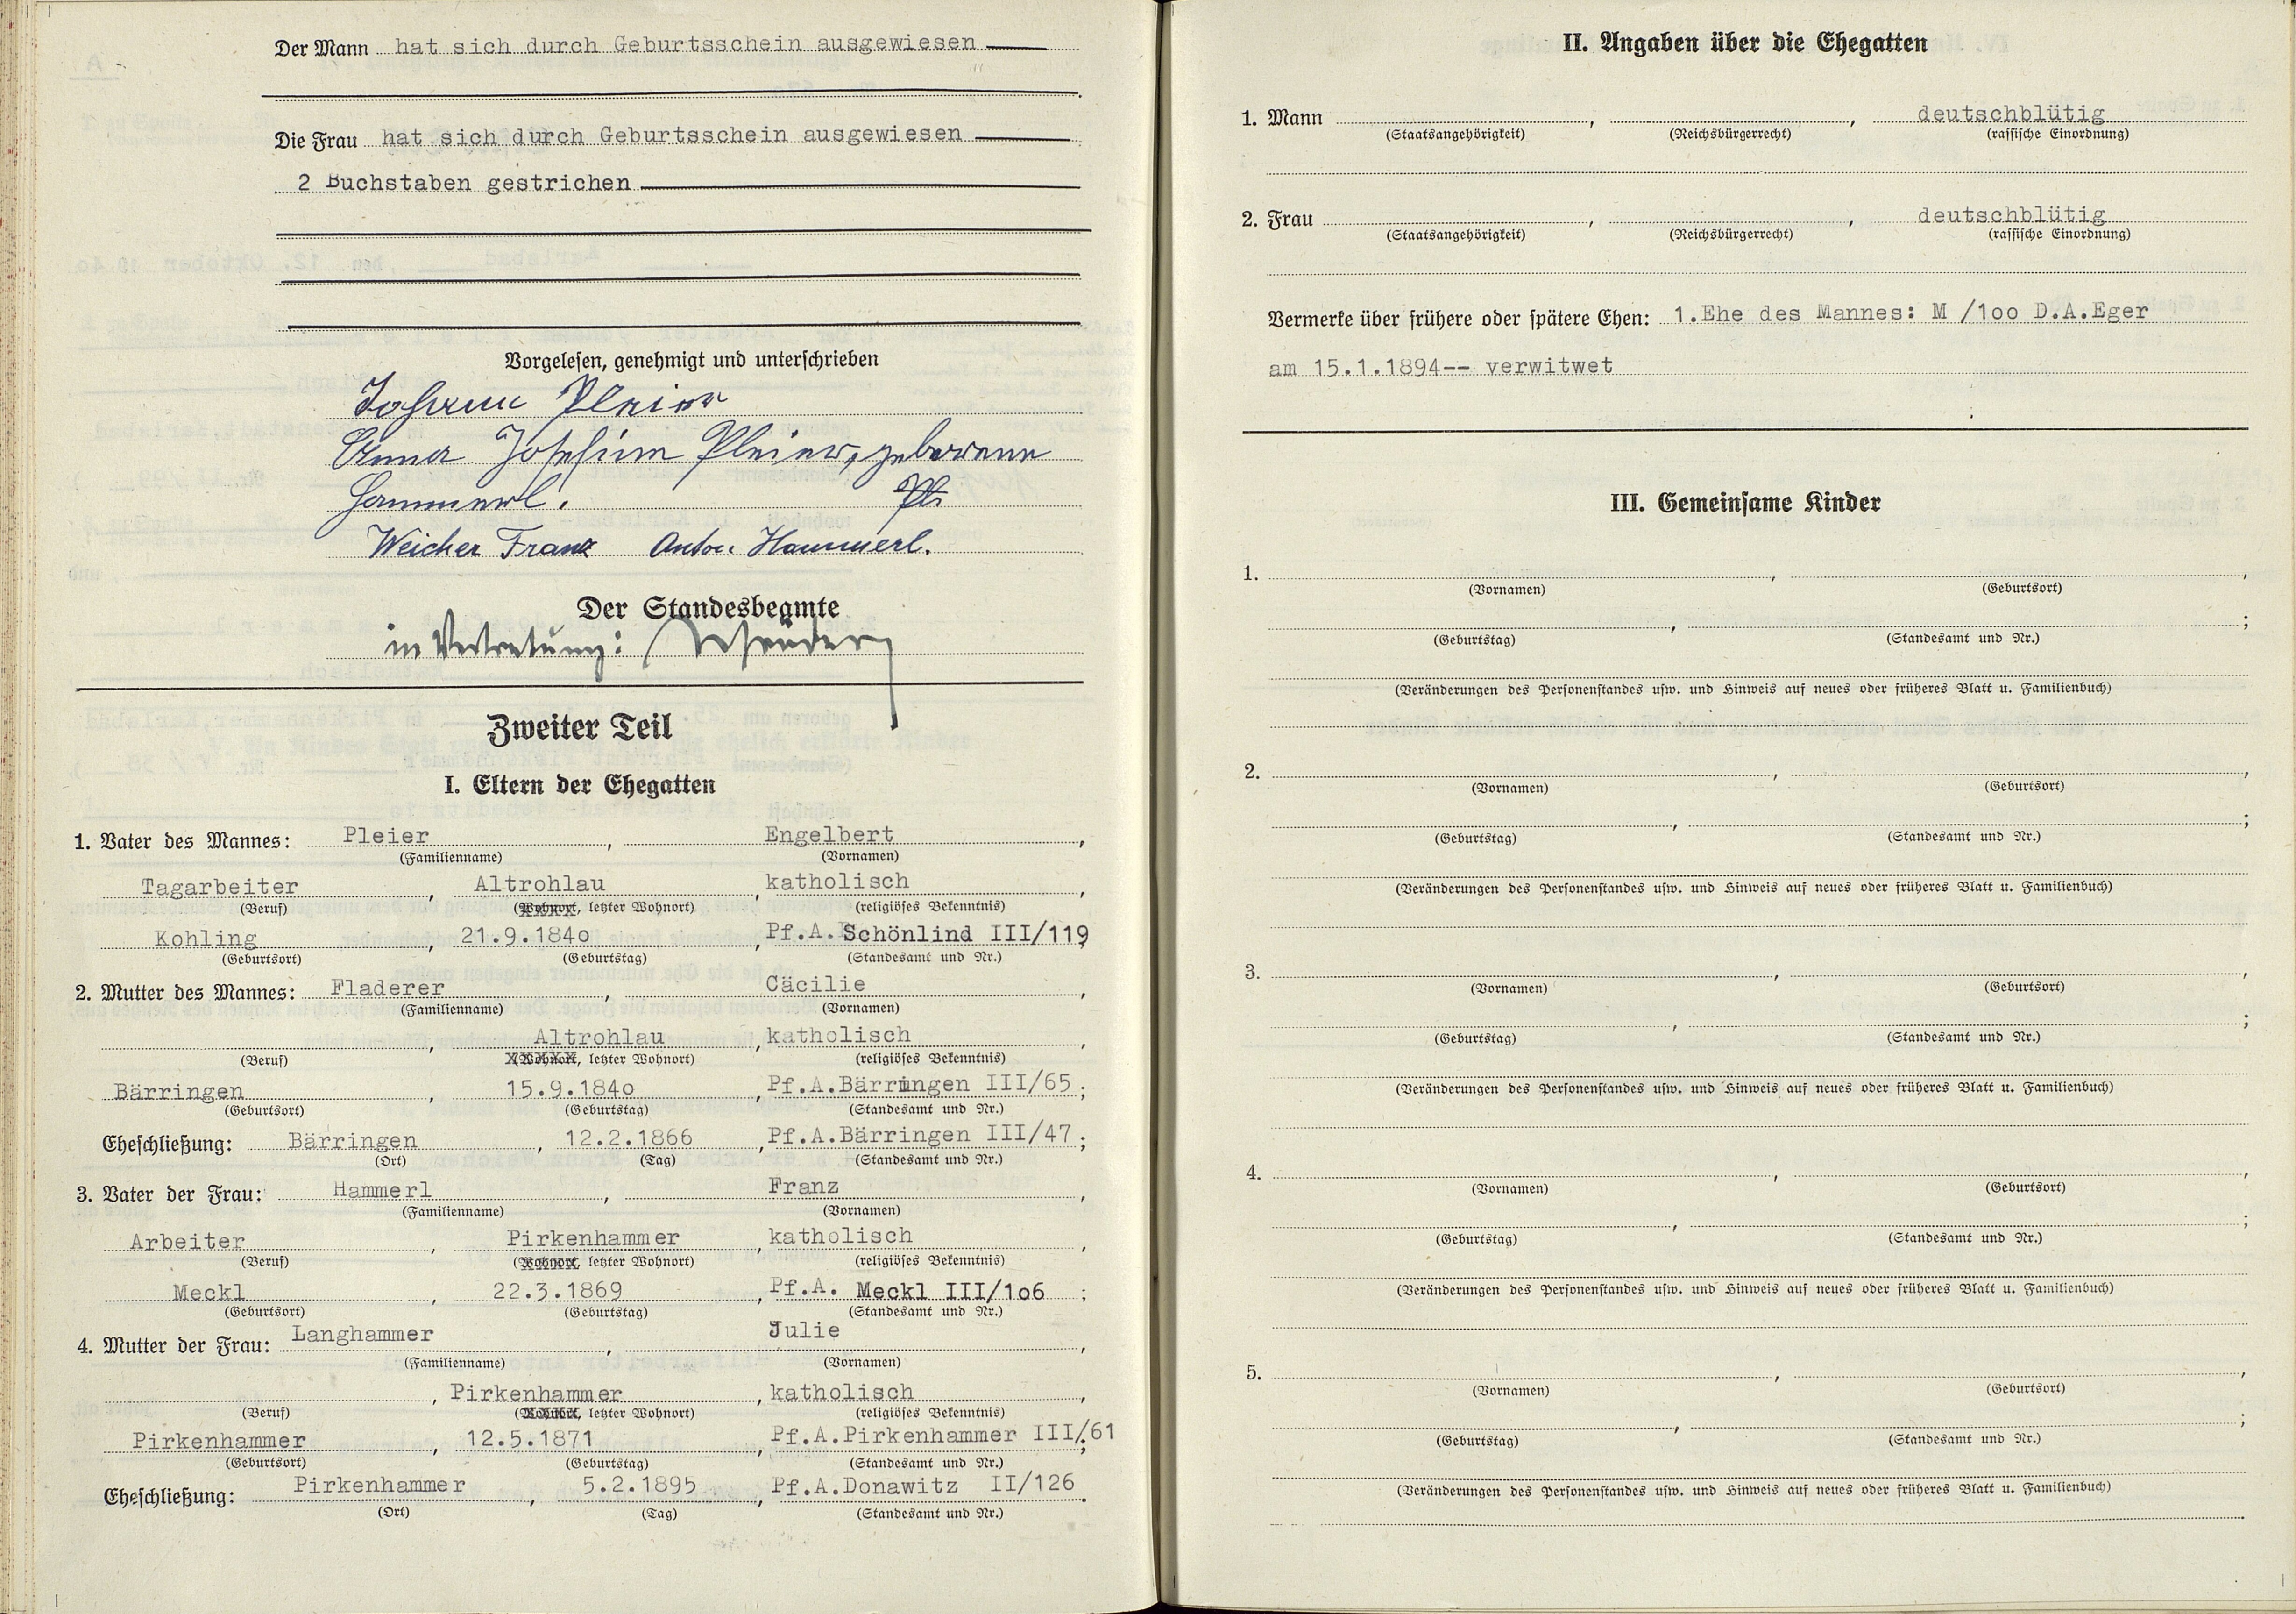 Der Mann hat sich durch Geburtsschein ausgewiesen
Die Frau hat sich durch Geburtsschein ausgewiesen
2 Buchstaben gestrichen
Vorgelesen, genehmigt und unterschrieben
Johann Pleier
Anna Josefine Pleier, geborene
Hammerl. Ple
Weicher Franz Anton Hammerl.
Der Standesbeamte
in Vertretung:
Zweiter Teil
I. Eltern der Ehegatten
1. Vater des Mannes: Pleier, Engelbert,
(Familienname) (Vornamen)
Tagarbeiter, Altrohlau, katholisch,
(Beruf) (Wohnort, letzter Wohnort) (religiöses Bekenntnis)
Kohling, 21.9.1840, Pf.A. Schönlind III/119
(Geburtsort) (Geburtstag) (Standesamt und Nr.)
2. Mutter des Mannes: Fladerer, Cäcilie,
(Familienname) (Vornamen)
, Altrohlau, katholisch,
(Beruf) (Wohnort, letzter Wohnort) (religiöses Bekenntnis)
Bärringen, 15.9.1840, Pf.A.Bärringen III/65;
(Geburtsort) (Geburtstag) (Standesamt und Nr.)
Eheschließung: Bärringen, 12.2.1866, Pf.A.Bärringen III/47;
(Ort) (Tag) (Standesamt und Nr.)
3. Vater der Frau: Hammerl, Franz,
(Familienname) (Vornamen)
Arbeiter, Pirkenhammer, katholisch,
(Beruf) (Wohnort, letzter Wohnort) (religiöses Bekenntnis)
Meckl, 22.3.1869, Pf.A. Meckl III/106;
(Geburtsort) (Geburtstag) (Standesamt und Nr.)
4. Mutter der Frau: Langhammer, Julie,
(Familienname) (Vornamen)
, Pirkenhammer, katholisch,
(Beruf) (Wohnort, letzter Wohnort) (religiöses Bekenntnis)
Pirkenhammer, 12.5.1871, Pf.A.Pirkenhammer III/61;
(Geburtsort) (Geburtstag) (Standesamt und Nr.)
Eheschließung: Pirkenhammer, 5.2.1895, Pf.A.Donawitz II/126.
(Ort) (Tag) (Standesamt und Nr.)
II. Angaben über die Ehegatten
1. Mann , , deutschblütig
(Staatsangehörigkeit) (Reichsbürgerrecht) (rassische Einordnung)
2. Frau , , deutschblütig
(Staatsangehörigkeit) (Reichsbürgerrecht) (rassische Einordnung)
Vermerke über frühere oder spätere Ehen: 1.Ehe des Mannes: M /100 D.A.Eger
am 15.1.1894-- verwitwet
III. Gemeinsame Kinder
1. , ,
(Vornamen) (Geburtsort)
, ;
(Geburtstag) (Standesamt und Nr.)
(Veränderungen des Personenstandes usw. und Hinweis auf neues oder früheres Blatt u. Familienbuch)
2. , ,
(Vornamen) (Geburtsort)
, ;
(Geburtstag) (Standesamt und Nr.)
(Veränderungen des Personenstandes usw. und Hinweis auf neues oder früheres Blatt u. Familienbuch)
3. , ,
(Vornamen) (Geburtsort)
, ;
(Geburtstag) (Standesamt und Nr.)
(Veränderungen des Personenstandes usw. und Hinweis auf neues oder früheres Blatt u. Familienbuch)
4. , ,
(Vornamen) (Geburtsort)
, ;
(Geburtstag) (Standesamt und Nr.)
(Veränderungen des Personenstandes usw. und Hinweis auf neues oder früheres Blatt u. Familienbuch)
5. , ,
(Vornamen) (Geburtsort)
, ;
(Geburtstag) (Standesamt und Nr.)
(Veränderungen des Personenstandes usw. und Hinweis auf neues oder früheres Blatt u. Familienbuch)